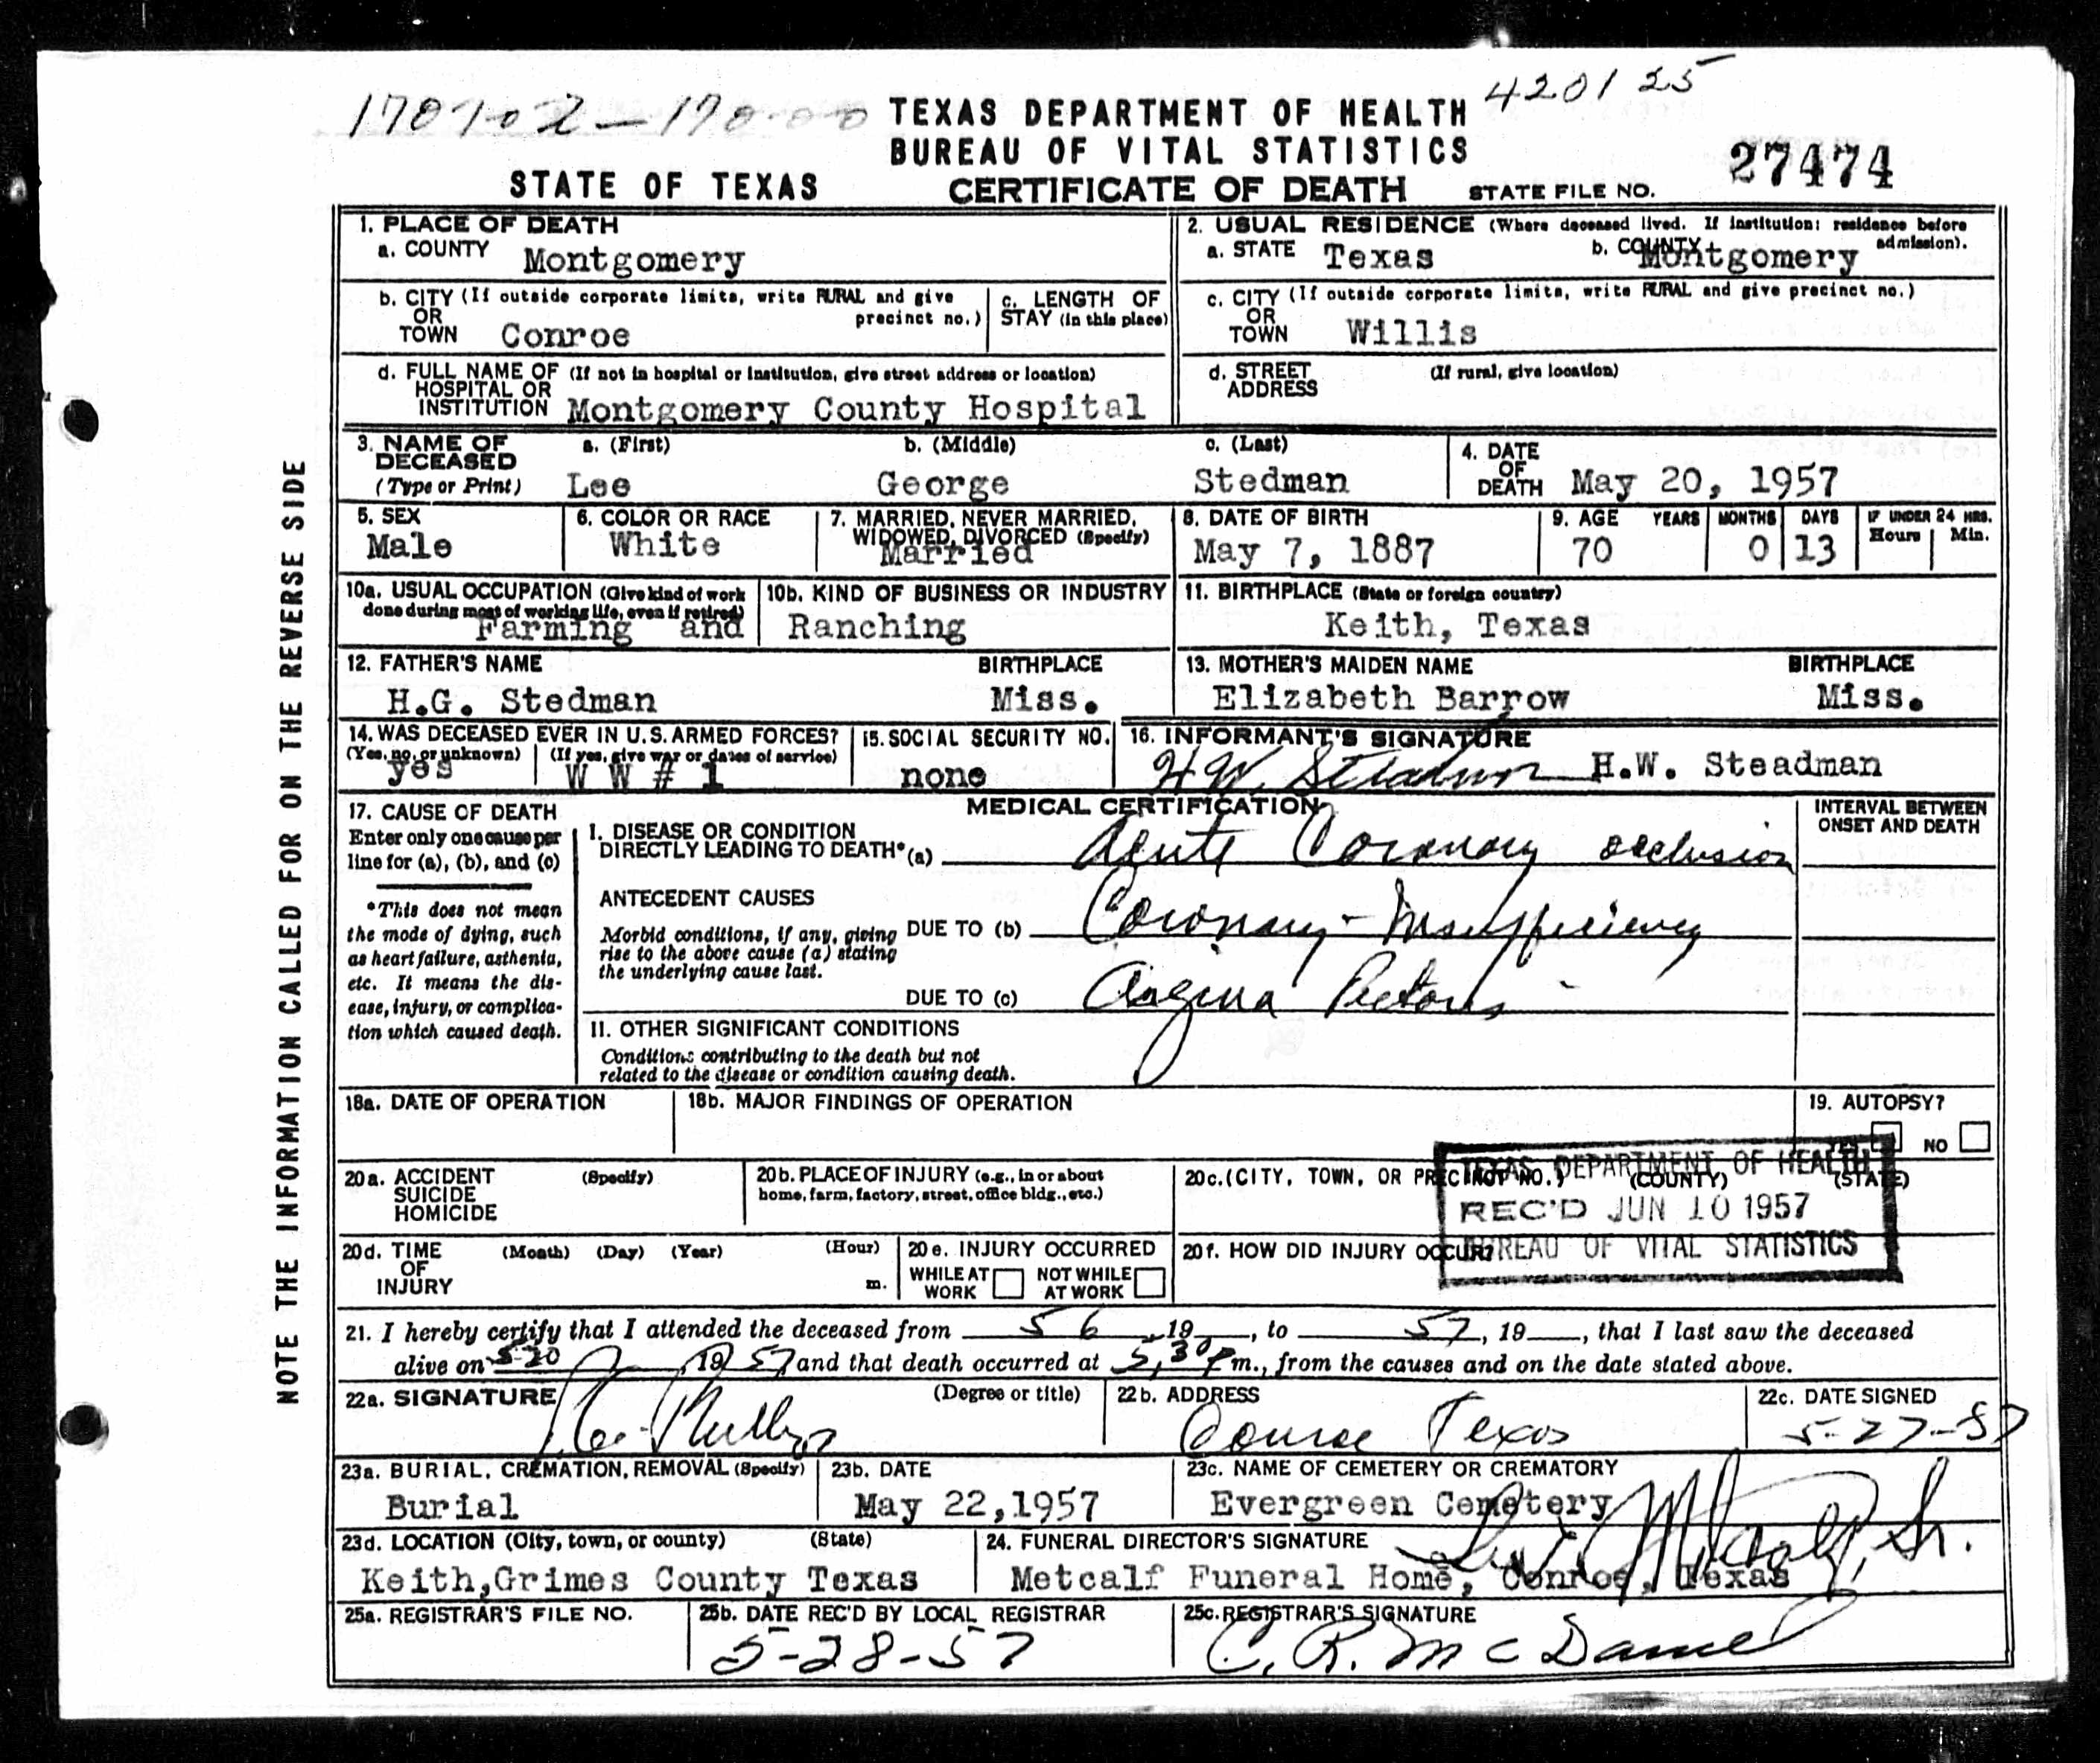 178702-170-00
420125
TEXAS DEPARTMENT OF HEALTH
BUREAU OF VITAL STATISTICS
STATE OF TEXAS CERTIFICATE OF DEATH STATE FILE NO. 27474
NOTE THE INFORMATION CALLED FOR ON THE REVERSE SIDE
1. PLACE OF DEATH
a. COUNTY Montgomery
2. USUAL RESIDENCE (Where deceased lived. If institution: residence before admission).
a. STATE Texas b. COUNTY Montgomery
b. CITY (If outside corporate limits, write RURAL and give precinct no.)
OR
TOWN Conroe
c. LENGTH OF
STAY (in this place)
c. CITY (If outside corporate limits, write RURAL and give precinct no.)
OR
TOWN Willis
d. FULL NAME OF (If not in hospital or institution, give street address or location)
HOSPITAL OR
INSTITUTION Montgomery County Hospital
d. STREET (If rural, give location)
ADDRESS
3. NAME OF a. (First) b. (Middle) c. (Last)
DECEASED
(Type or Print) Lee George Stedman
4. DATE
OF
DEATH May 20, 1957
5. SEX
Male
6. COLOR OR RACE
White
7. MARRIED, NEVER MARRIED,
WIDOWED, DIVORCED (Specify)
Married
8. DATE OF BIRTH
May 7, 1887
9. AGE YEARS MONTHS DAYS IF UNDER 24 HRS.
Hours Min.
70 0 13
10a. USUAL OCCUPATION (Give kind of work
done during most of working life, even if retired)
Farming and
10b. KIND OF BUSINESS OR INDUSTRY
Ranching
11. BIRTHPLACE (State or foreign country)
Keith, Texas
12. FATHER'S NAME BIRTHPLACE
H.G. Stedman Miss.
13. MOTHER'S MAIDEN NAME BIRTHPLACE
Elizabeth Barrow Miss.
14. WAS DECEASED EVER IN U.S. ARMED FORCES?
(Yes, no, or unknown) (If yes, give war or dates of service)
yes W W # 1
15. SOCIAL SECURITY NO.
none
16. INFORMANT'S SIGNATURE
H.W. Steadman H.W. Steadman
17. CAUSE OF DEATH
Enter only one cause per
line for (a), (b), and (c)
*This does not mean
the mode of dying, such
as heart failure, asthenia,
etc. It means the dis-
ease, injury, or complica-
tion which caused death.
MEDICAL CERTIFICATION
INTERVAL BETWEEN
ONSET AND DEATH
I. DISEASE OR CONDITION
DIRECTLY LEADING TO DEATH* (a) Acute Coronary occlusion
ANTECEDENT CAUSES
Morbid conditions, if any, giving
rise to the above cause (a) stating
the underlying cause last.
DUE TO (b) Coronary - Insufficiency
DUE TO (c) Angina Pectoris -
II. OTHER SIGNIFICANT CONDITIONS
Conditions contributing to the death but not
related to the disease or condition causing death.
18a. DATE OF OPERATION
18b. MAJOR FINDINGS OF OPERATION
19. AUTOPSY?
YES NO
20a. ACCIDENT (Specify)
SUICIDE
HOMICIDE
20b. PLACE OF INJURY (e.g., in or about
home, farm, factory, street, office bldg., etc.)
20c. (CITY, TOWN, OR PRECINCT NO.) (COUNTY) (STATE)
TEXAS DEPARTMENT OF HEALTH
REC'D JUN 10 1957
BUREAU OF VITAL STATISTICS
20d. TIME (Month) (Day) (Year) (Hour)
OF
INJURY m.
20e. INJURY OCCURRED
WHILE AT WORK NOT WHILE AT WORK
20f. HOW DID INJURY OCCUR?
21. I hereby certify that I attended the deceased from 56, 19 , to 57, 19 , that I last saw the deceased
alive on 5-20 , 19 57 and that death occurred at 5:30 P m., from the causes and on the date stated above.
22a. SIGNATURE (Degree or title)
22b. ADDRESS
Conroe Texas
22c. DATE SIGNED
5-27-57
23a. BURIAL, CREMATION, REMOVAL (Specify)
Burial
23b. DATE
May 22,1957
23c. NAME OF CEMETERY OR CREMATORY
Evergreen Cemetery
23d. LOCATION (City, town, or county) (State)
Keith,Grimes County Texas
24. FUNERAL DIRECTOR'S SIGNATURE
Metcalf Funeral Home, Conroe, Texas
25a. REGISTRAR'S FILE NO.
25b. DATE REC'D BY LOCAL REGISTRAR
5-28-57
25c. REGISTRAR'S SIGNATURE
C. R. McDaniel